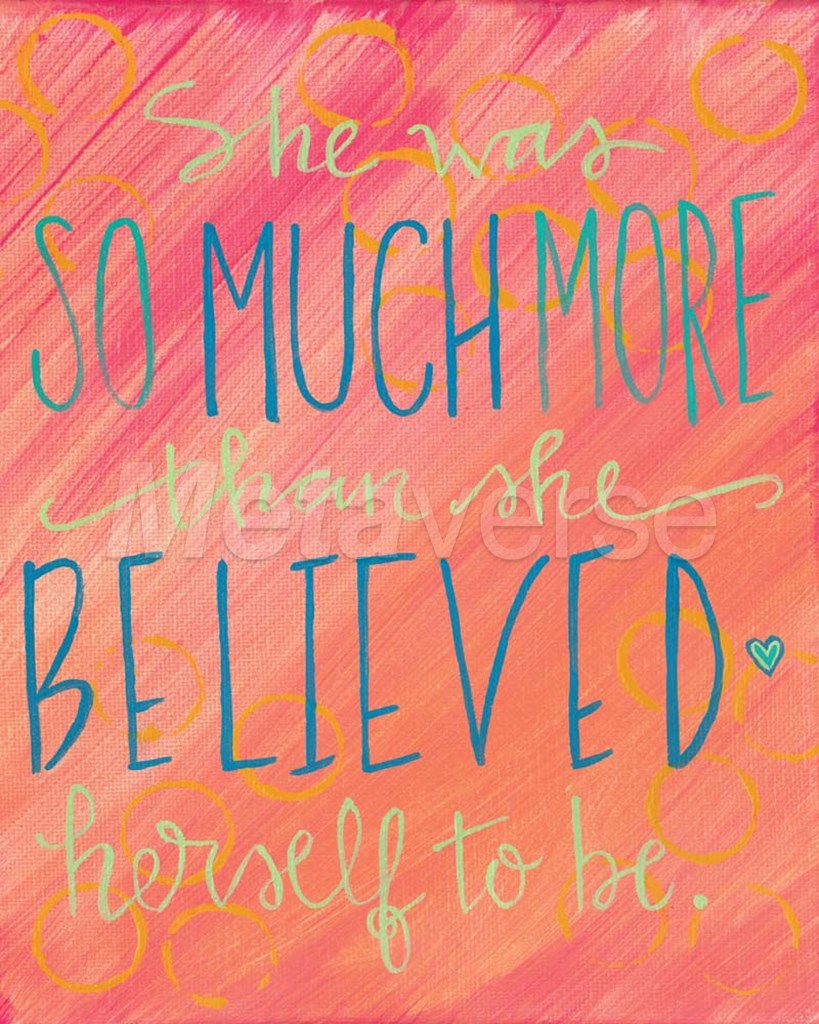 She was
SO MUCH MORE
than she
Metaverse
BELIEVED
herself to be.